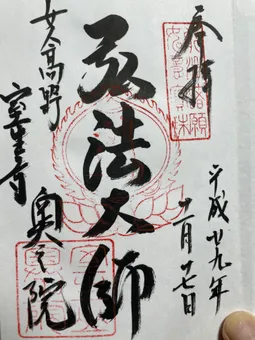 奉拝
平成廿九年
十一月廿七日
弘法大師
女人高野
室生寺
奥之院